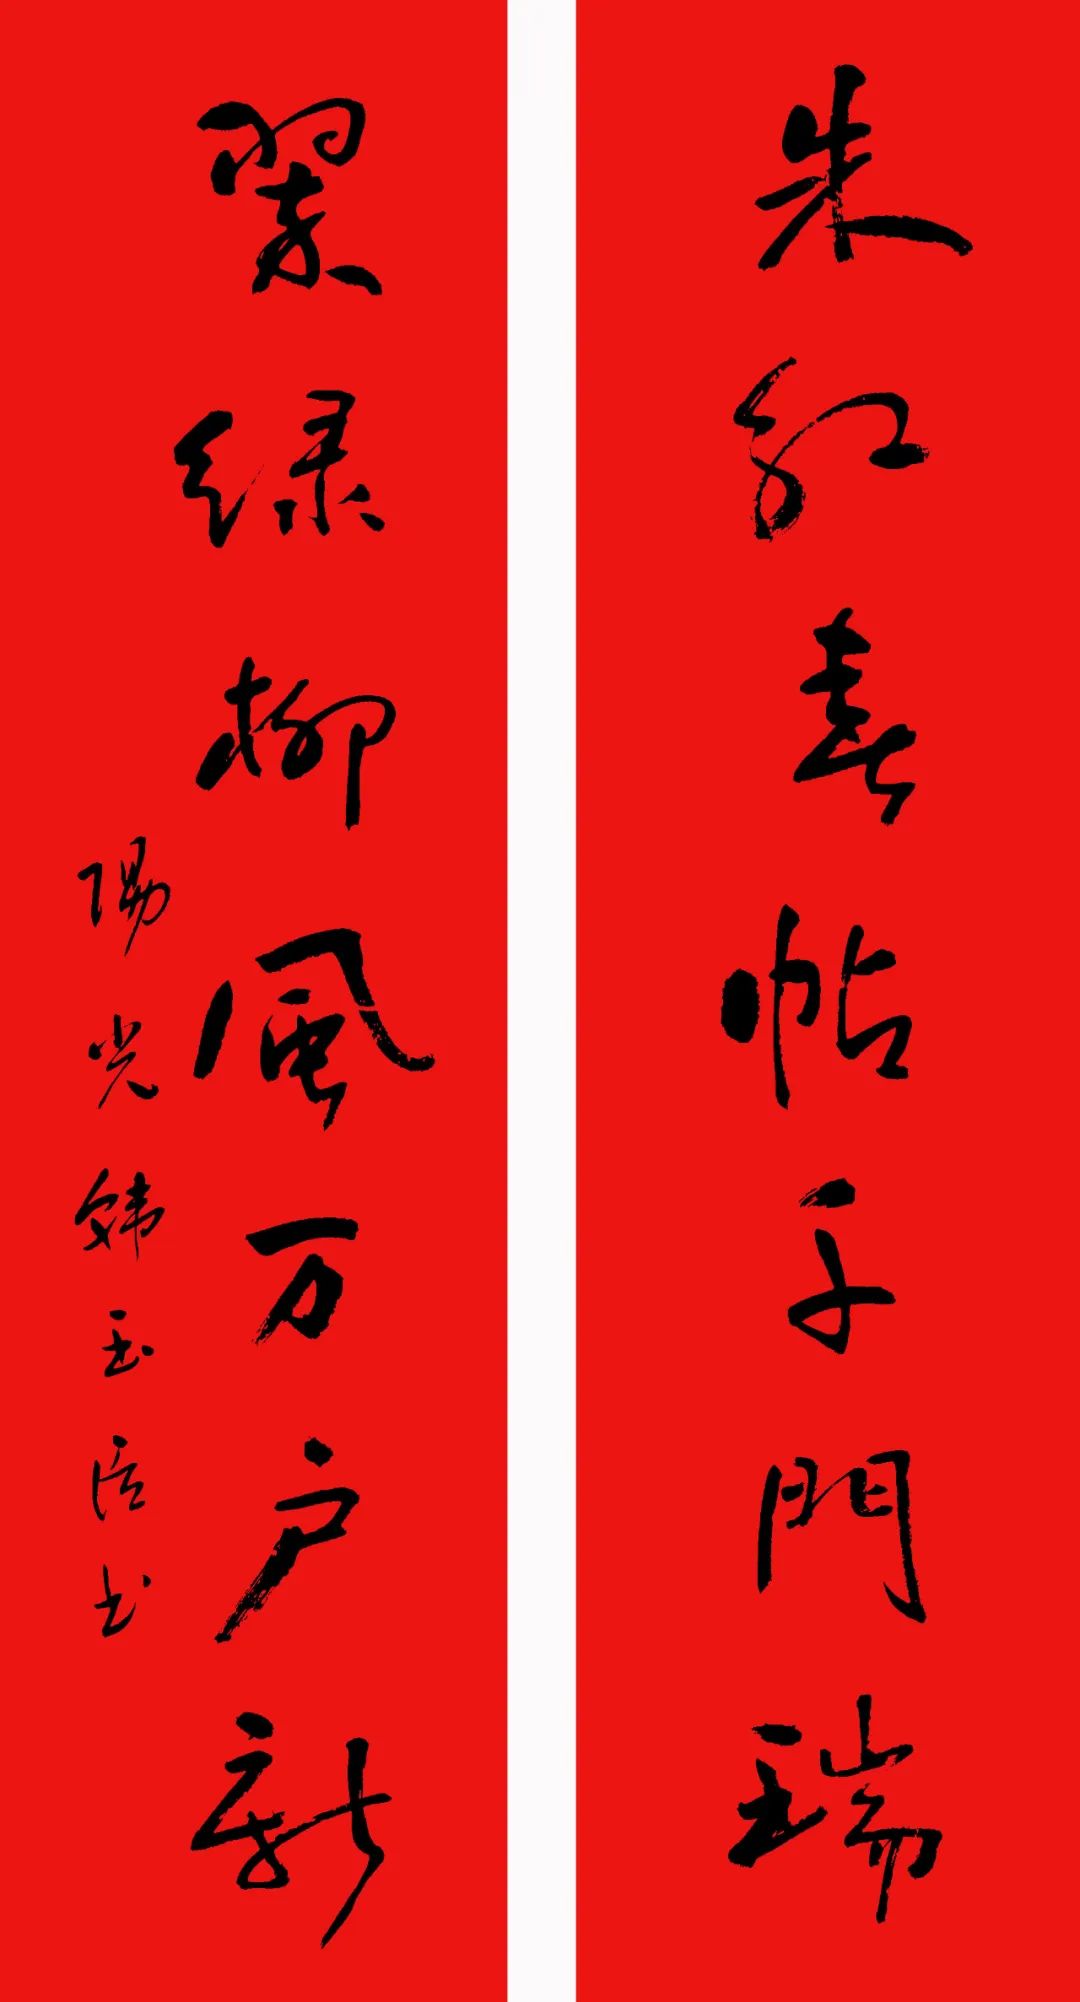 朱红春帖千門瑞
翠绿柳風万户新
陽光
玉
书